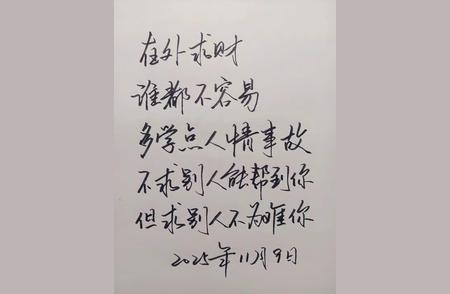 在外求财
谁都不容易
多学点人情事故
不求别人能帮到你
但求别人不为难你
2025年11月9日